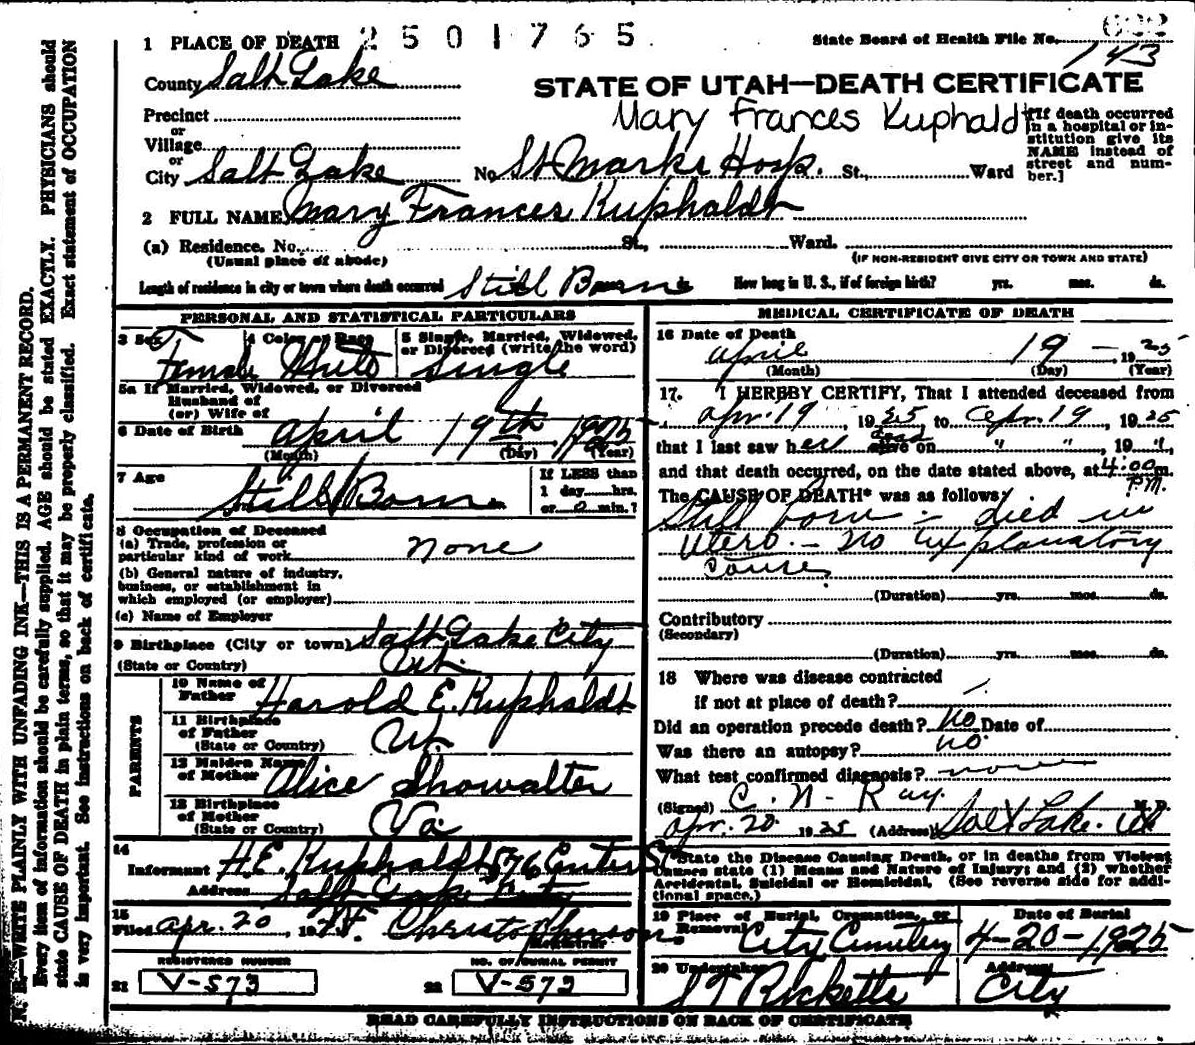 1 PLACE OF DEATH 2501765
State Board of Health File No. 143
County Salt Lake
STATE OF UTAH—DEATH CERTIFICATE
Mary Frances Kuphaldt
Precinct
or
Village
or
City Salt Lake No St Marks Hosp. St., Ward
[If death occurred
in a hospital or in-
stitution give its
NAME instead of
street and num-
ber.]
2 FULL NAME Mary Frances Kuphaldt
(a) Residence. No. St., Ward.
(Usual place of abode) (IF NON-RESIDENT GIVE CITY OR TOWN AND STATE)
Length of residence in city or town where death occurred Still Borne How long in U. S., if of foreign birth? yrs. mos. ds.
PERSONAL AND STATISTICAL PARTICULARS
3 Sex 4 Color or Race 5 Single, Married, Widowed,
or Divorced (write the word)
Female White Single
5a If Married, Widowed, or Divorced
Husband of
(or) Wife of
6 Date of Birth April 19th, 1925
(Month) (Day) (Year)
7 Age Still Borne
If LESS than
1 day hrs.
or 0 min.?
8 Occupation of Deceased
(a) Trade, profession or
particular kind of work none
(b) General nature of industry,
business, or establishment in
which employed (or employer)
(c) Name of Employer
9 Birthplace (City or town) Salt Lake City
(State or Country) Ut.
PARENTS
10 Name of
Father Harold E. Kuphaldt
11 Birthplace
of Father
(State or Country) Ut.
12 Maiden Name
of Mother Alice Showalter
13 Birthplace
of Mother
(State or Country) Va.
14
Informant H.E. Kuphaldt 576 Center St
Address Salt Lake City
15
Filed Apr. 20, 19 Christopherson
Registrar
REGISTERED NUMBER NO. OF BURIAL PERMIT
21 V-573 22 V-573
MEDICAL CERTIFICATE OF DEATH
16 Date of Death
April 19 - 1925
(Month) (Day) (Year)
17. I HEREBY CERTIFY, That I attended deceased from
Apr. 19, 1925, to Apr. 19, 1925
that I last saw her alive dead on " ", 19 ",
and that death occurred, on the date stated above, at 4:00 m.
P.M.
The CAUSE OF DEATH* was as follows:
Still born - died in
utero. - No explanatory
cause.
(Duration) yrs. mos. ds.
Contributory
(Secondary)
(Duration) yrs. mos. ds.
18 Where was disease contracted
if not at place of death?
Did an operation precede death? No Date of
Was there an autopsy? no.
What test confirmed diagnosis? none
(Signed) C. N. Ray. M. D.
Apr. 20 1925 (Address) Salt Lake. Ut
*State the Disease Causing Death, or in deaths from Violent
Causes state (1) Means and Nature of Injury; and (2) whether
Accidental, Suicidal or Homicidal. (See reverse side for addi-
tional space.)
19 Place of Burial, Cremation, or
Removal City Cemetery
Date of Burial
4-20-1925
20 Undertaker
S T Ricketts
Address
City
READ CAREFULLY INSTRUCTIONS ON BACK OF CERTIFICATE
N. B.—WRITE PLAINLY WITH UNFADING INK—THIS IS A PERMANENT RECORD.
Every item of information should be carefully supplied. AGE should be stated EXACTLY. PHYSICIANS should
state CAUSE OF DEATH in plain terms, so that it may be properly classified. Exact statement of OCCUPATION
is very important. See instructions on back of certificate.